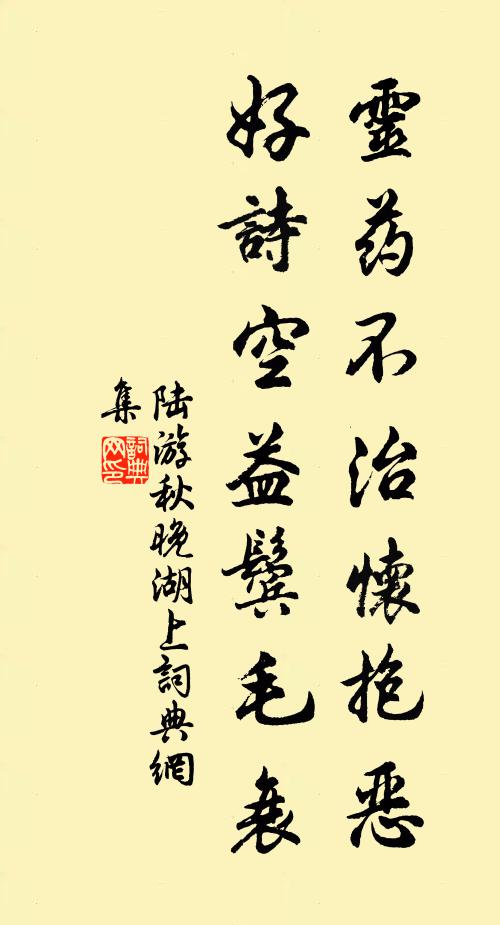 靈药不治懷抱惡
好詩空益鬓毛衰
陆游秋晚湖上詞典網
集
詞典
网印